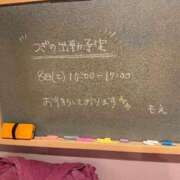 つぎの出勤予定
8日(土) 10:00-17:00
お待ちしております
もえ